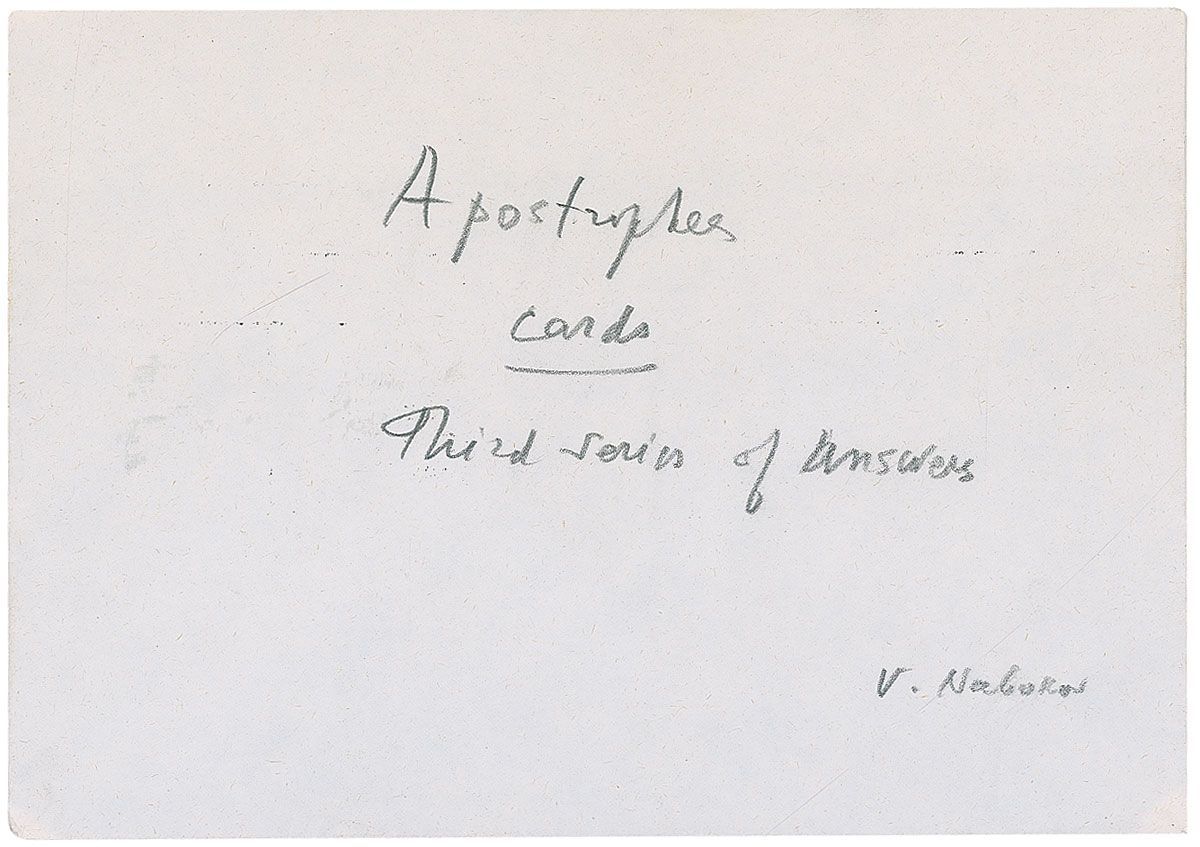 Apostrophes
cards
Third series of Answers
V. Nabokov